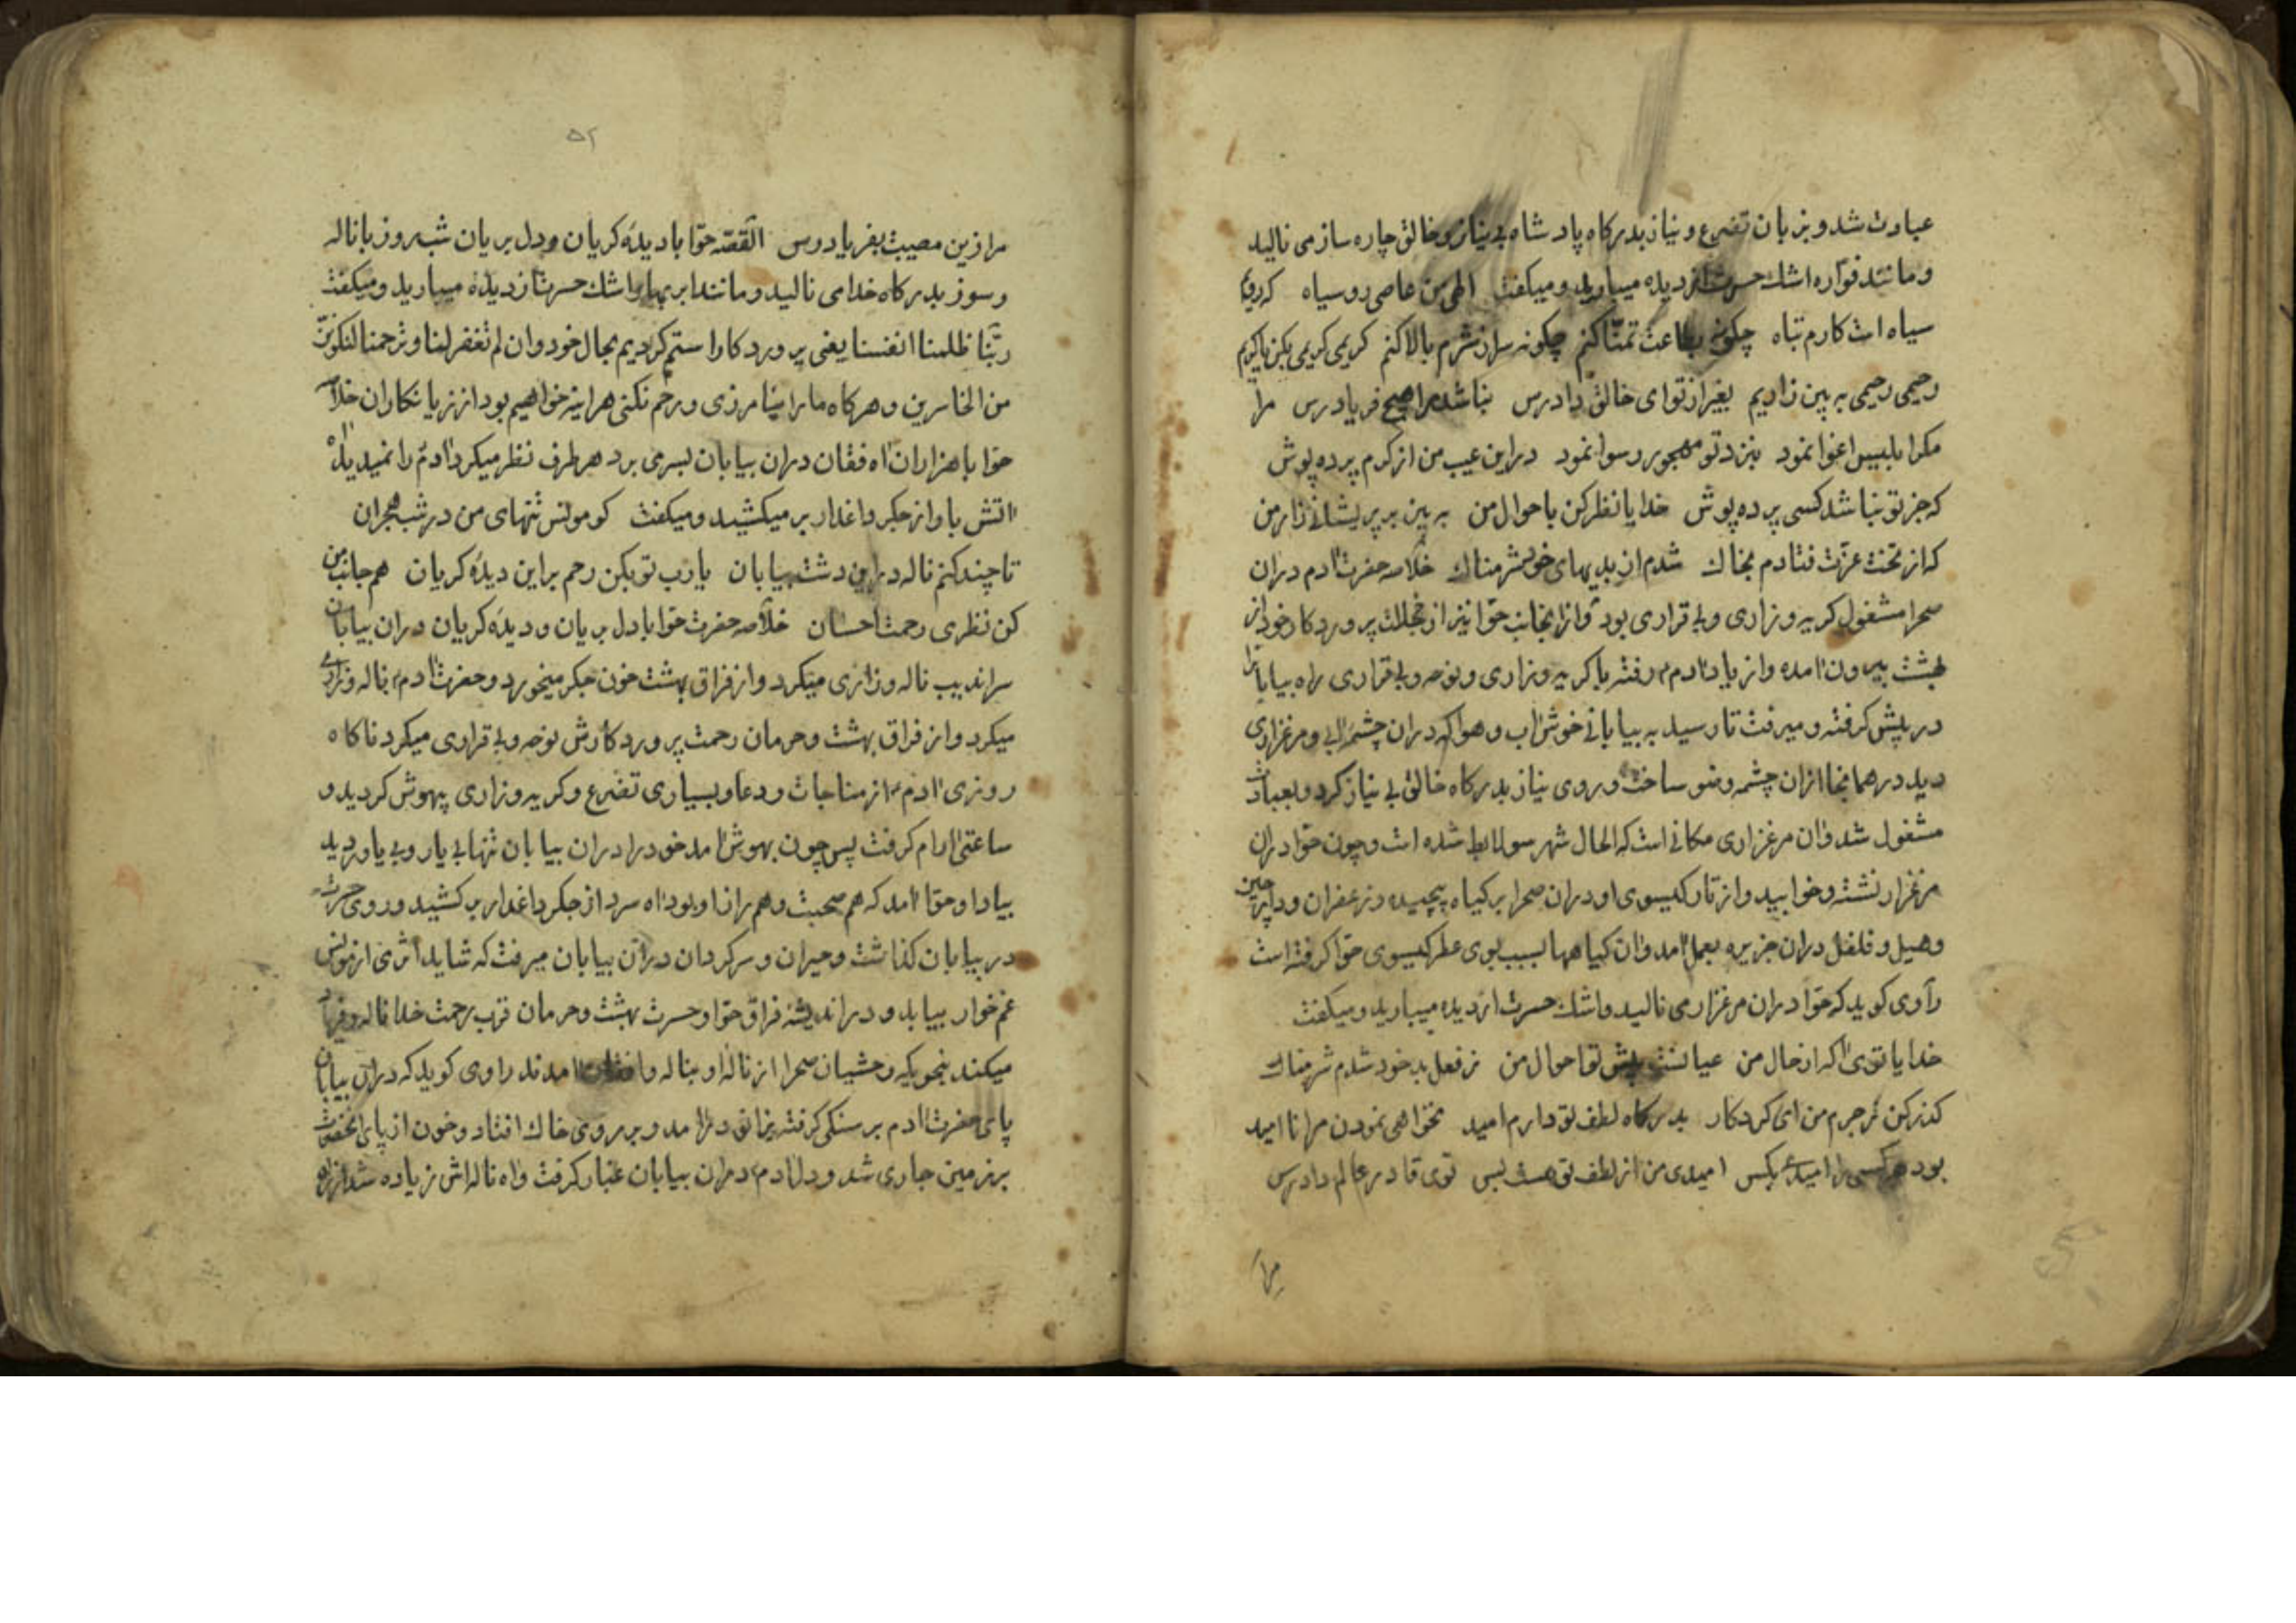 عبادت شد و بزبان تضرع و نیاز بدرکاه پادشاه بی نیاز و خالق چاره ساز می نالید
و مانند فواره اشك حسرت از دیده میبارید و میکفت الهی من عاصی روسیاه که روی
سیاه است کارم تباه چکونه بطاعت تمنا کنم چکونه سر از شرم بالا کنم کریمی کریمی بکن یاریم
رحیمی رحیمی به بین زاریم بغیر از تو ای خالق دادرس نباشد مرا هیچ فریادرس مرا
مکر ابلیس اغوا نمود بنزد تو مهجور رسوا نمود در این عیب من از کرم پرده پوش
که جز تو نباشد کسی پرده پوش خدایا نظر کن باحوال من به بین بر پریشانی زار من
که از تخت عزت فتادم بخاك شدم از بدیهای خود شرمناك خلاصه حضرت ادم دران
صحرا مشغول کریه و زاری و بی قراری بود و از انجانب حوا نیز از خجالت پرورد کار خود از
بهشت بیرون امده و از یاد ادم رفته با کریه و زاری و نوحه و بی قراری راه بیابانرا
در پیش کرفته و میرفت تا رسید به بیابانی خوش اب و هوا که دران چشمه ابی و مرغزاری
دید در همانجا ازان چشمه وضو ساخت و روی نیاز بدرکاه خالق بی نیاز کرد و بعبادت
مشغول شد و ان مرغزاری مکانی است که الحال شهر شده است و چون حوا دران
مرغزار نشته و خوابید و از تار کیسوی او دران صحرا بر کیاه پیچیده و زعفران و دارچین
و هیل و فلفل دران جزیره بعمل امد و ان کیاهها بسبب بوی عطر کیسوی حوا کرفته است
راوی کوید که حوا دران مرغزار می نالید و اشك حسرت از دیده میبارید و میکفت
خدایا توی اکه از حال من عیانست پیش تو احوال من ز فعل بد خود شدم شرمناك
کذر کن ز جرم من ای کردکار بدرکاه لطف تو دارم امید نخواهی نمودن مرا ناامید
بود هر کسی را امید بکس امیدی من از لطف تو هست بس توی قادر عالم دادرس
مرا
۵۲
مرا زین مصیبت بفریاد رس القصه حوا بادیده کریان و دل بریان شب و روز با ناله
و سوز بدرکاه خدا می نالید و مانند ابر بهار اشك حسرت از دیده میبارید و میکفت
ربنا ظلمنا انفسنا یعنی پروردکارا ستم کردیم بحال خود و ان لم تغفر لنا و ترحمنا لنکونن
من الخاسرین و هرکاه ما را نیامرزی و رحم نکنی هراینه خواهیم بود از زیانکاران خلاصه
حوا با هزاران اه فغان دران بیابان بسر می برد هر طرف نظر میکرد ادم را نمیدید اه
اتش بار از جکر داغدار بر میکشید و میکفت کو مونس تنهای من در شب هجران
تا چند کنم ناله در این دشت بیابان یارب تو بکن رحم بر این دیده کریان هم جانب من
کن نظری رحمت احسان خلاصه حضرت حوا بادل بریان و دیده کریان دران بیابان
سراندیب ناله و زاری میکرد و از فراق بهشت خون جکر میخورد و حضرت ادم ناله و زاری
میکرد و از فراق بهشت و حرمان رحمت پروردکارش نوحه و بی قراری میکرد ناکاه
روزی ادم از مناجات و دعا و بسیاری تضرع و کریه و زاری بیهوش کردید و
ساعتی ارام کرفت پس چون بهوش امد خود را دران بیابان تنها بی یار و بی یاور دید
بیاد او حوا امد که هم صحبت و هم راز او بود اه سرد از جکر داغدار بر کشید و روی حسرت
در بیابان کذاشت و حیران و سرکردان دران بیابان میرفت که شاید اثری از مونس
غم خوار بیابد و در اندیشه فراق حوا و حسرت بهشت و حرمان قرب رحمت خدا ناله و فریاد
میکند بنحویکه وحشیان صحرا از ناله او بناله و افغان امدند راوی کوید که دران بیابان
پای حضرت ادم بر سنکی کرفته بزانو درامد و بر روی خاك افتاد و خون از پای انحضرت
بر زمین جاری شد و دل ادم دران بیابان غبار کرفت و اه ناله اش زیاده شد